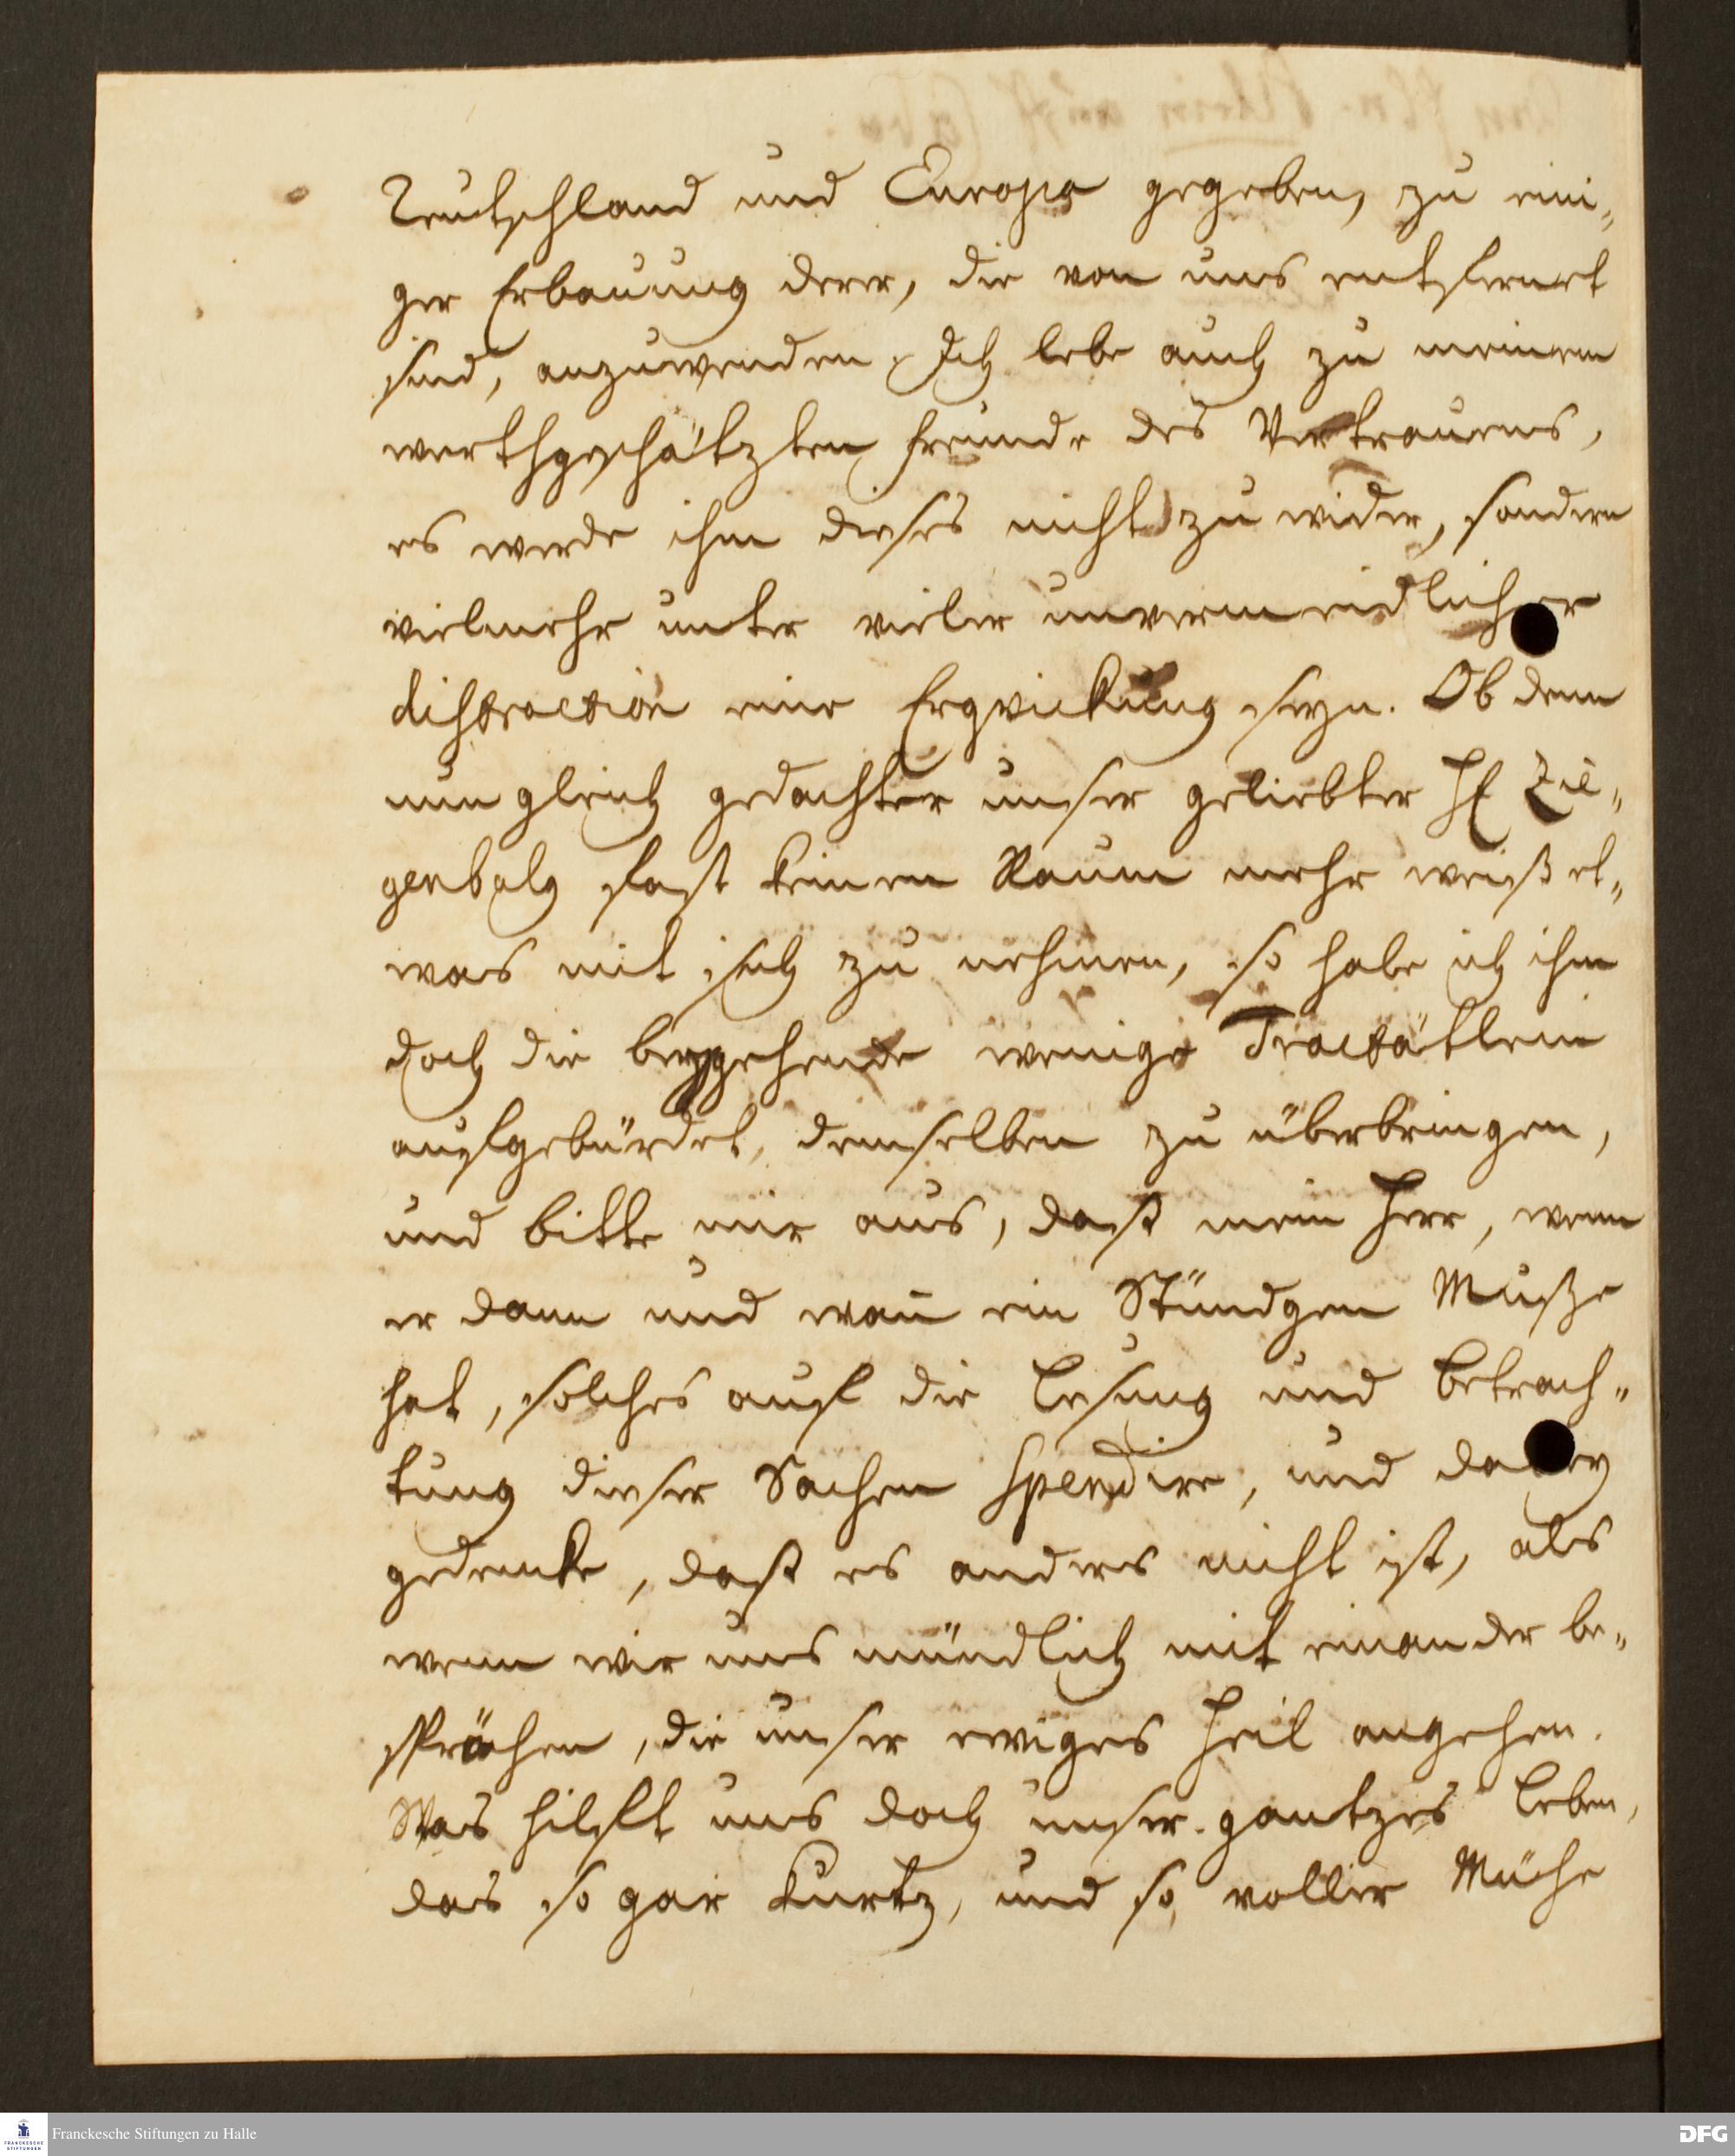 Teutschland und Europa gegeben, zu eini-
ger Erbauung derer, die von uns entfernet
sind, anzuwenden. Ich lebe auch zu meinem
werthgeschätzten Freunde des Vertrauens,
es werde ihm dieses nicht zu wider, sondern
vielmehr unter vieler unvermeidlicher
distraction eine Erqvickung seyn. Ob denn
nun gleich gedachter unser geliebter H Zie-
genbalg fast keinen Raum mehr weiß et-
was mit sich zu nehmen, so habe ich ihm
doch die beygehende wenige Tractätlein
aufgebürdet, demselben zu überbringen,
und bitte mir aus, dass mein Herr, wenn
er dann und wañ ein Stündgen Musze
hat, solches auf die Lesung und Betrach-
tung dieser Sachen spendire, und dabey
gedencke, dass es anders nicht ist, als
wenn wir uns mündlich mit einander be-
sprächen, die unser ewiges Heil angehen.
Was hilfft uns doch unser gantzes Leben,
das so gar kurtz, und so voller Mühe
Franckesche Stiftungen zu Halle
FRANCKESCHE STIFTUNGEN
DFG